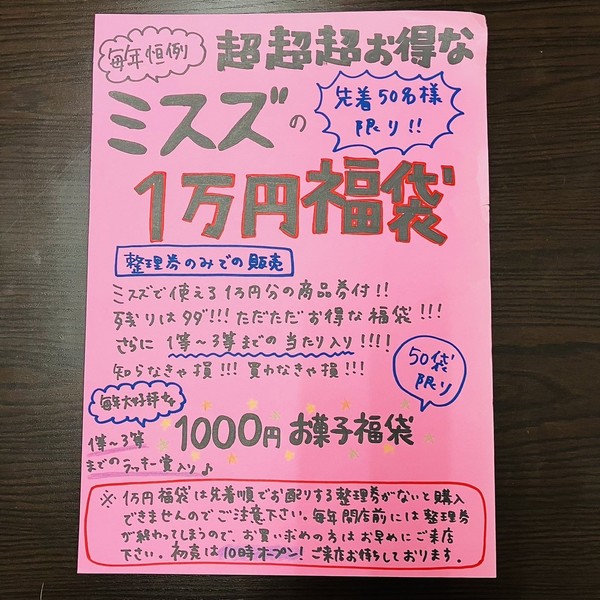 毎年恒例
超超超お得な
ミスズの
先着50名様
限り!!
1万円福袋
整理券のみでの販売
ミスズで使える1万円分の商品券付!!
残りはタダ!!!ただただお得な福袋!!!
さらに1等～3等までの当たり入り!!!!
知らなきゃ損!!!買わなきゃ損!!!
50袋
限り
毎年大好評
1000円お菓子福袋
1等～3等
までのラッキー賞入り♪
※1万円福袋は先着順でお配りする整理券がないと購入
できませんのでご注意下さい。毎年開店前には整理券
が終わってしまうので、お買い求めの方はお早めにご来店
下さい。初売は10時オープン!ご来店お待ちしております。